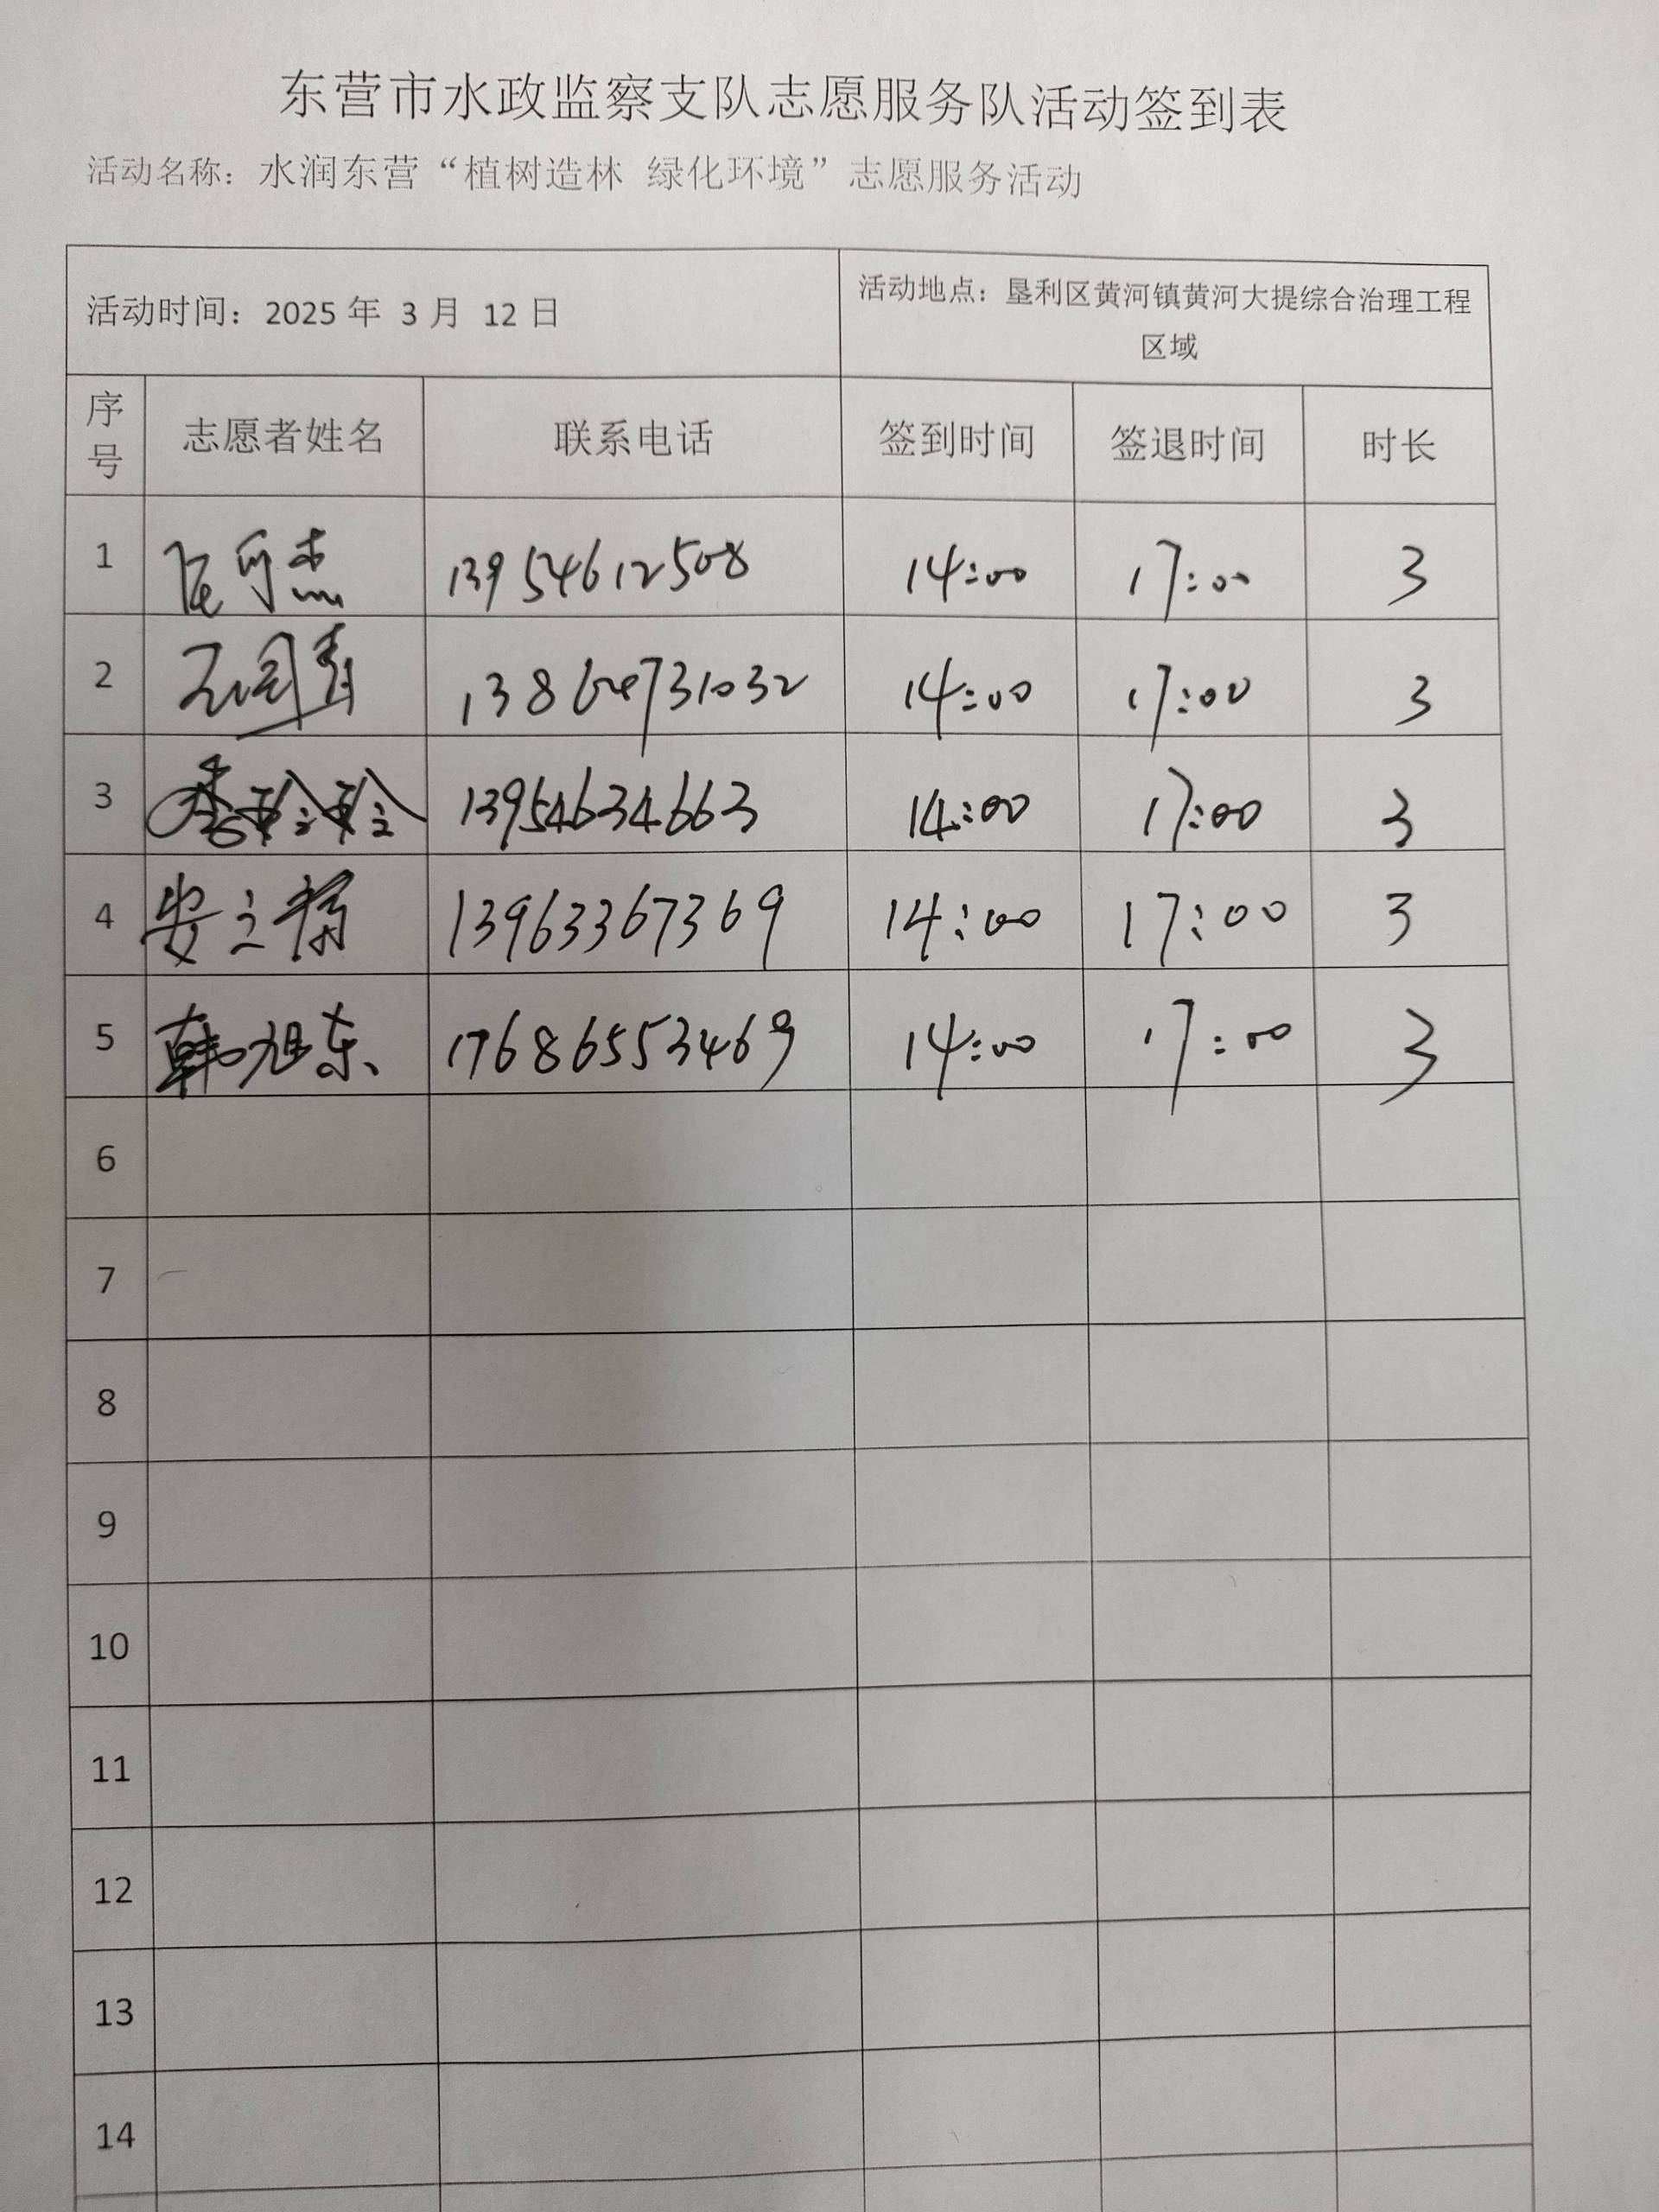 东营市水政监察支队志愿服务队活动签到表
活动名称：水润东营“植树造林 绿化环境”志愿服务活动
活动时间：2025 年 3 月 12 日
活动地点：垦利区黄河镇黄河大提综合治理工程
区域
序号 志愿者姓名 联系电话 签到时间 签退时间 时长
1 13954612508 14:00 17:00 3
2 14:00 17:00 3
3 李玲玲 13954634663 14:00 17:00 3
4 13963367369 14:00 17:00 3
5 韩旭东 17686553469 14:00 17:00 3
6
7
8
9
10
11
12
13
14